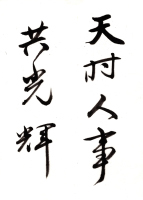 天时人事
共光輝